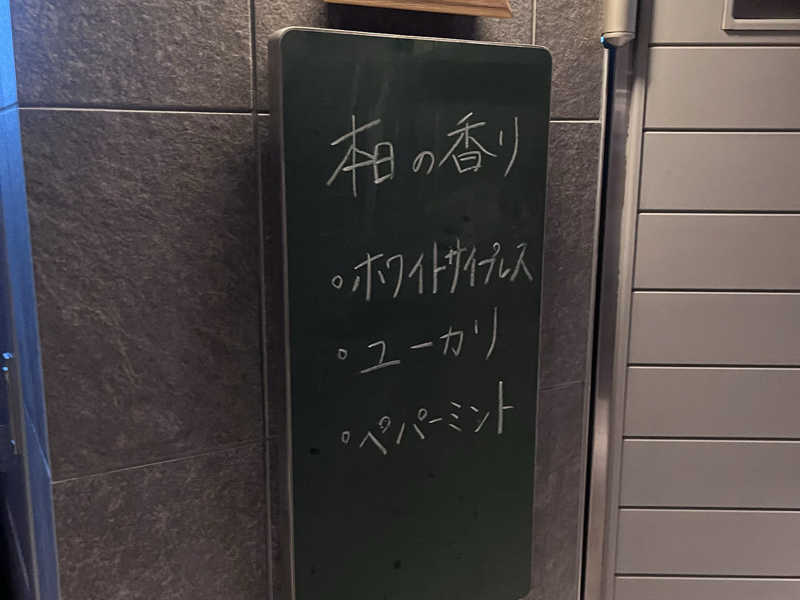 本日の香り
◦ホワイトサイプレス
◦ユーカリ
◦ペパーミント